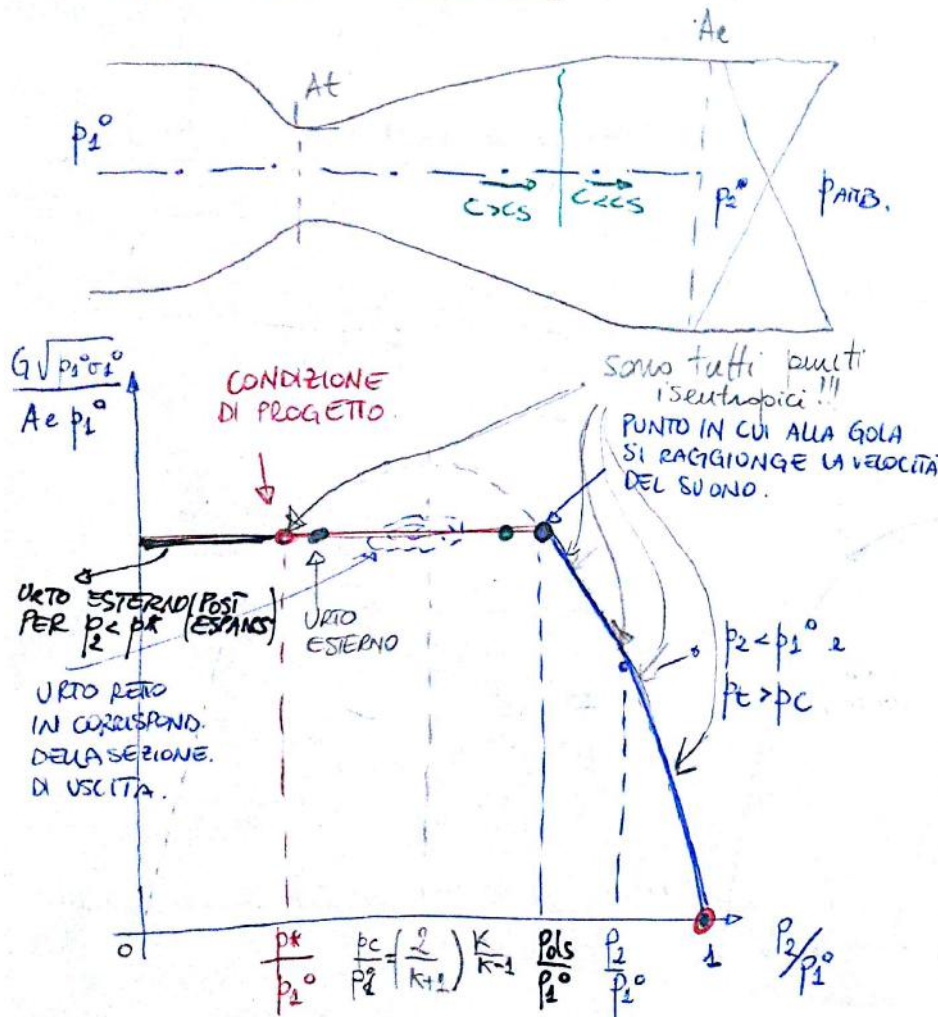 Ae
At
p1°
c>cs
c<cs
p2*
pAMB.
G√p1°σ1°
Ae p1°
CONDIZIONE
DI PROGETTO.
sono tutti punti
isentropici !!!
PUNTO IN CUI ALLA GOLA
SI RAGGIUNGE LA VELOCITÀ
DEL SUONO.
URTO ESTERNO (POST
PER p2 < p* ESPANS)
URTO
ESTERNO
p2 < p1° e
pt > pc
URTO RETTO
IN CORRISPOND.
DELLA SEZIONE.
DI USCITA.
0
p*/p1°
pc/p1° = (2/K+1) K/K-1
pols/p1°
p2/p1°
1
P2/p1°